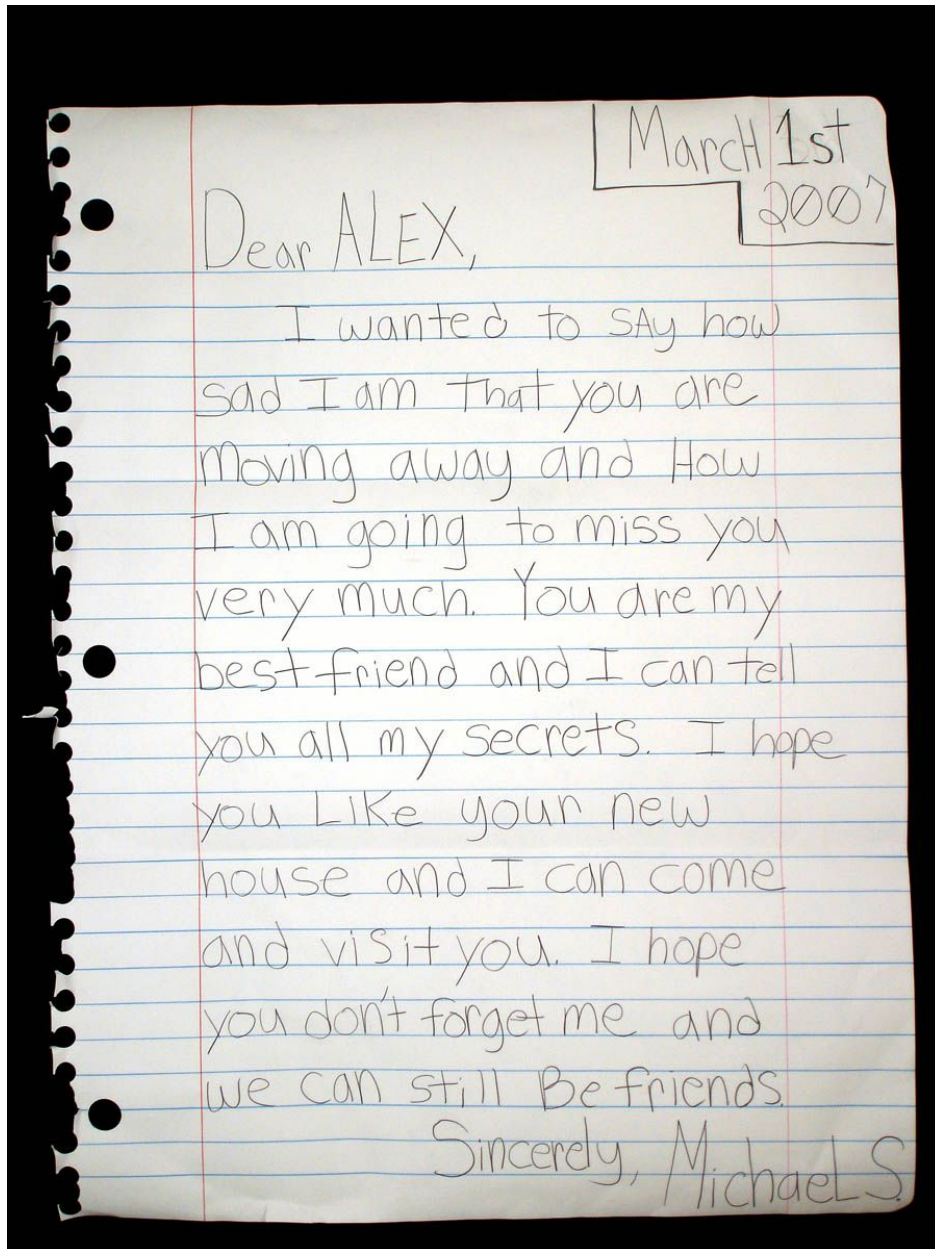 MarcH 1st
2007
Dear ALEX,
I wanted to SAy how
sad I am that you are
moving away and How
I am going to miss you
very much. You are my
best friend and I can tell
you all my secrets. I hope
you LiKe your new
house and I can come
and viSit you. I hope
you don't forget me and
we can still Be friends.
Sincerely, MichaeL S.